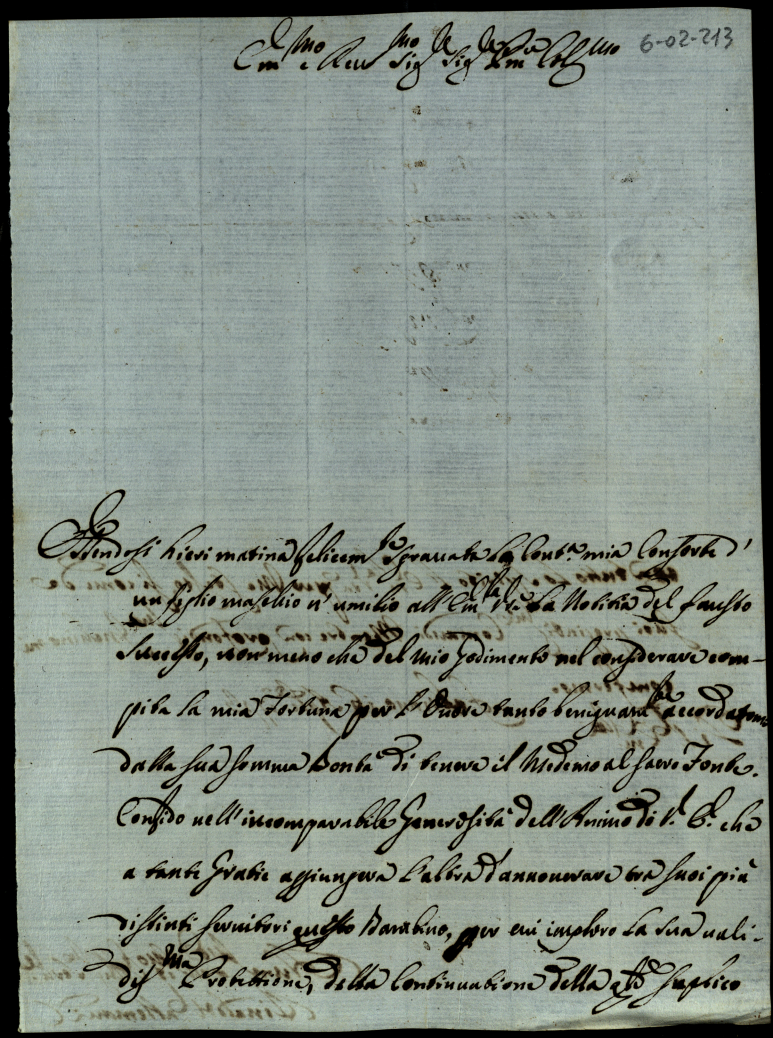 6-02-213
Em.mo e Rev.mo Sig.re Sig.re P.rone Col.mo
Essendosi hieri matina felicem.te sgravata la Cont.a mia Consorte d'
un figlio maschio n' umilio all' Em.za V.ra la Notitia del fausto
Successo, non meno che del mio godimento nel considerare com-
pita la mia Fortuna per l'Onore tanto benignam.te accordatomi
dalla sua somma Bontà di tenere il Medemo al sacro Fonte.
Confido nell' incomparabile Generosità dell' Animo di V. E. che
a tante Gratie aggiungerà l'altra d'annoverare tra suoi più
distinti servitori questo Bambino, per cui imploro la sua vali-
diss.ma Protettione, della Continuatione della q.le suplico